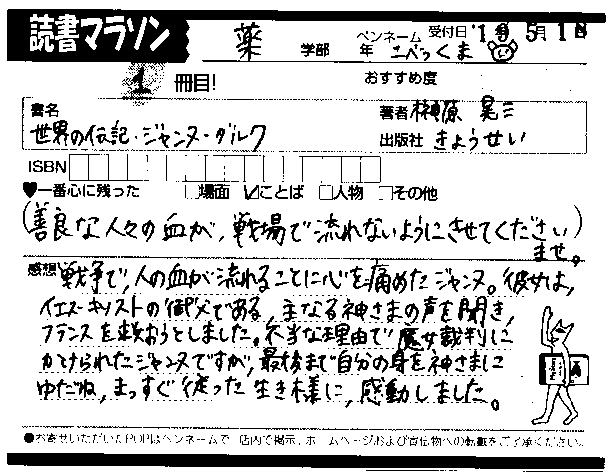 読書マラソン
薬 学部 年 ペンネーム こべっくま 受付日 '19 5月1日
1 冊目! おすすめ度
書名 世界の伝記・ジャンヌ・ダルク
著者 榊原 晃三
出版社 きょうせい
ISBN
♥一番心に残った □場面 ☑ことば □人物 □その他
(善良な人々の血が、戦場で流れないようにさせてください)
ませ。
感想 戦争で、人の血が流れることに心を痛めたジャンヌ。彼女は、
イエズ・キリストの御父である、主なる神さまの声を聞き、
フランスを救おうとしました。不当な理由で魔女裁判に
かけられたジャンヌですが、最後まで自分の身を神さまに
ゆだね、まっすぐ従った生き様に、感動しました。
●お寄せいただいたPOPはペンネームで 店内で掲示、ホームページおよび宣伝物への転載をご了承ください。